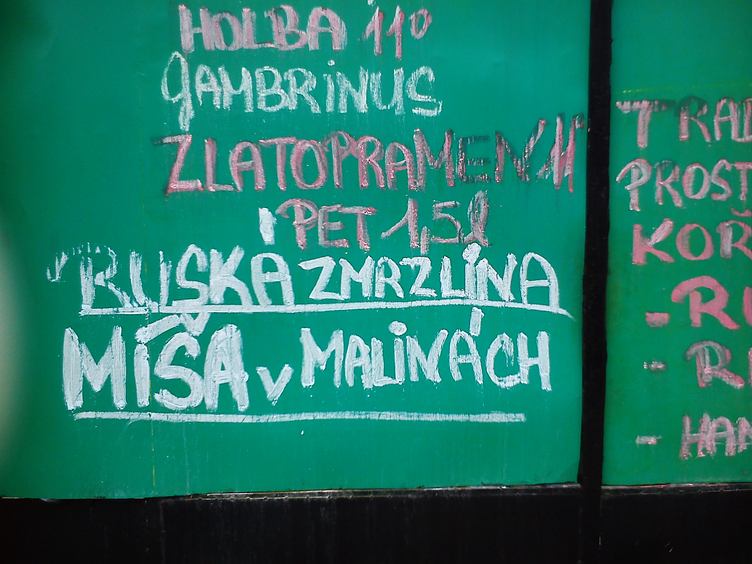 HOLBA 11º
GAMBRINUS
ZLATOPRAMEN 11º
PET 1,5l
RUSKÁ ZMRZLINA
MÍŠA v MALINÁCH
TRAD
PROST
KOŘ
- R
- R
- HAM